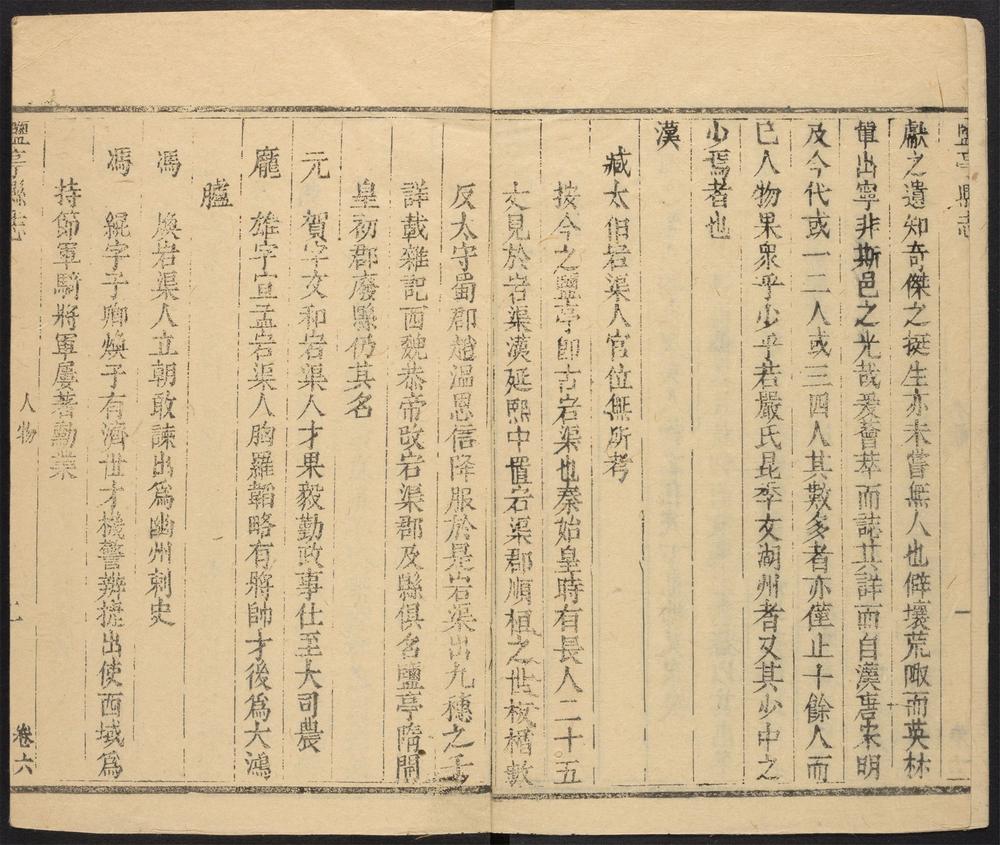 鹽亭縣志
一
獻之遺知奇傑之挺生亦未嘗無人也僻壤荒陬而英林
軰出寧非斯邑之光哉爰薈萃而誌其詳而自漢唐宋明
及今代或一二人或三四人其數多者亦僅止十餘人而
已人物果衆乎少乎若嚴氏昆季文湖州者又其少中之
少焉者也
漢
臧太伯宕渠人官位無所考
按今之鹽亭即古宕渠也秦始皇時有長人二十五
丈見於宕渠漢延熙中置宕渠郡順桓之世板楯數
反太守蜀郡趙溫恩信降服於是宕渠出九穗之禾
詳載雜記西魏恭帝改宕渠郡及縣俱名鹽亭隋開
皇初郡廢縣仍其名
元 賀字文和宕渠人才果毅勤政事仕至大司農
龐 雄字宣孟宕渠人胸羅韜略有將帥才後爲大鴻
臚
馮 煥宕渠人立朝敢諫出爲幽州刺史
馮 緄字子卿煥子有濟世才機警辨捷出使西域爲
持節軍騎將軍屢著勳業
鹽亭縣志
人物
卷六